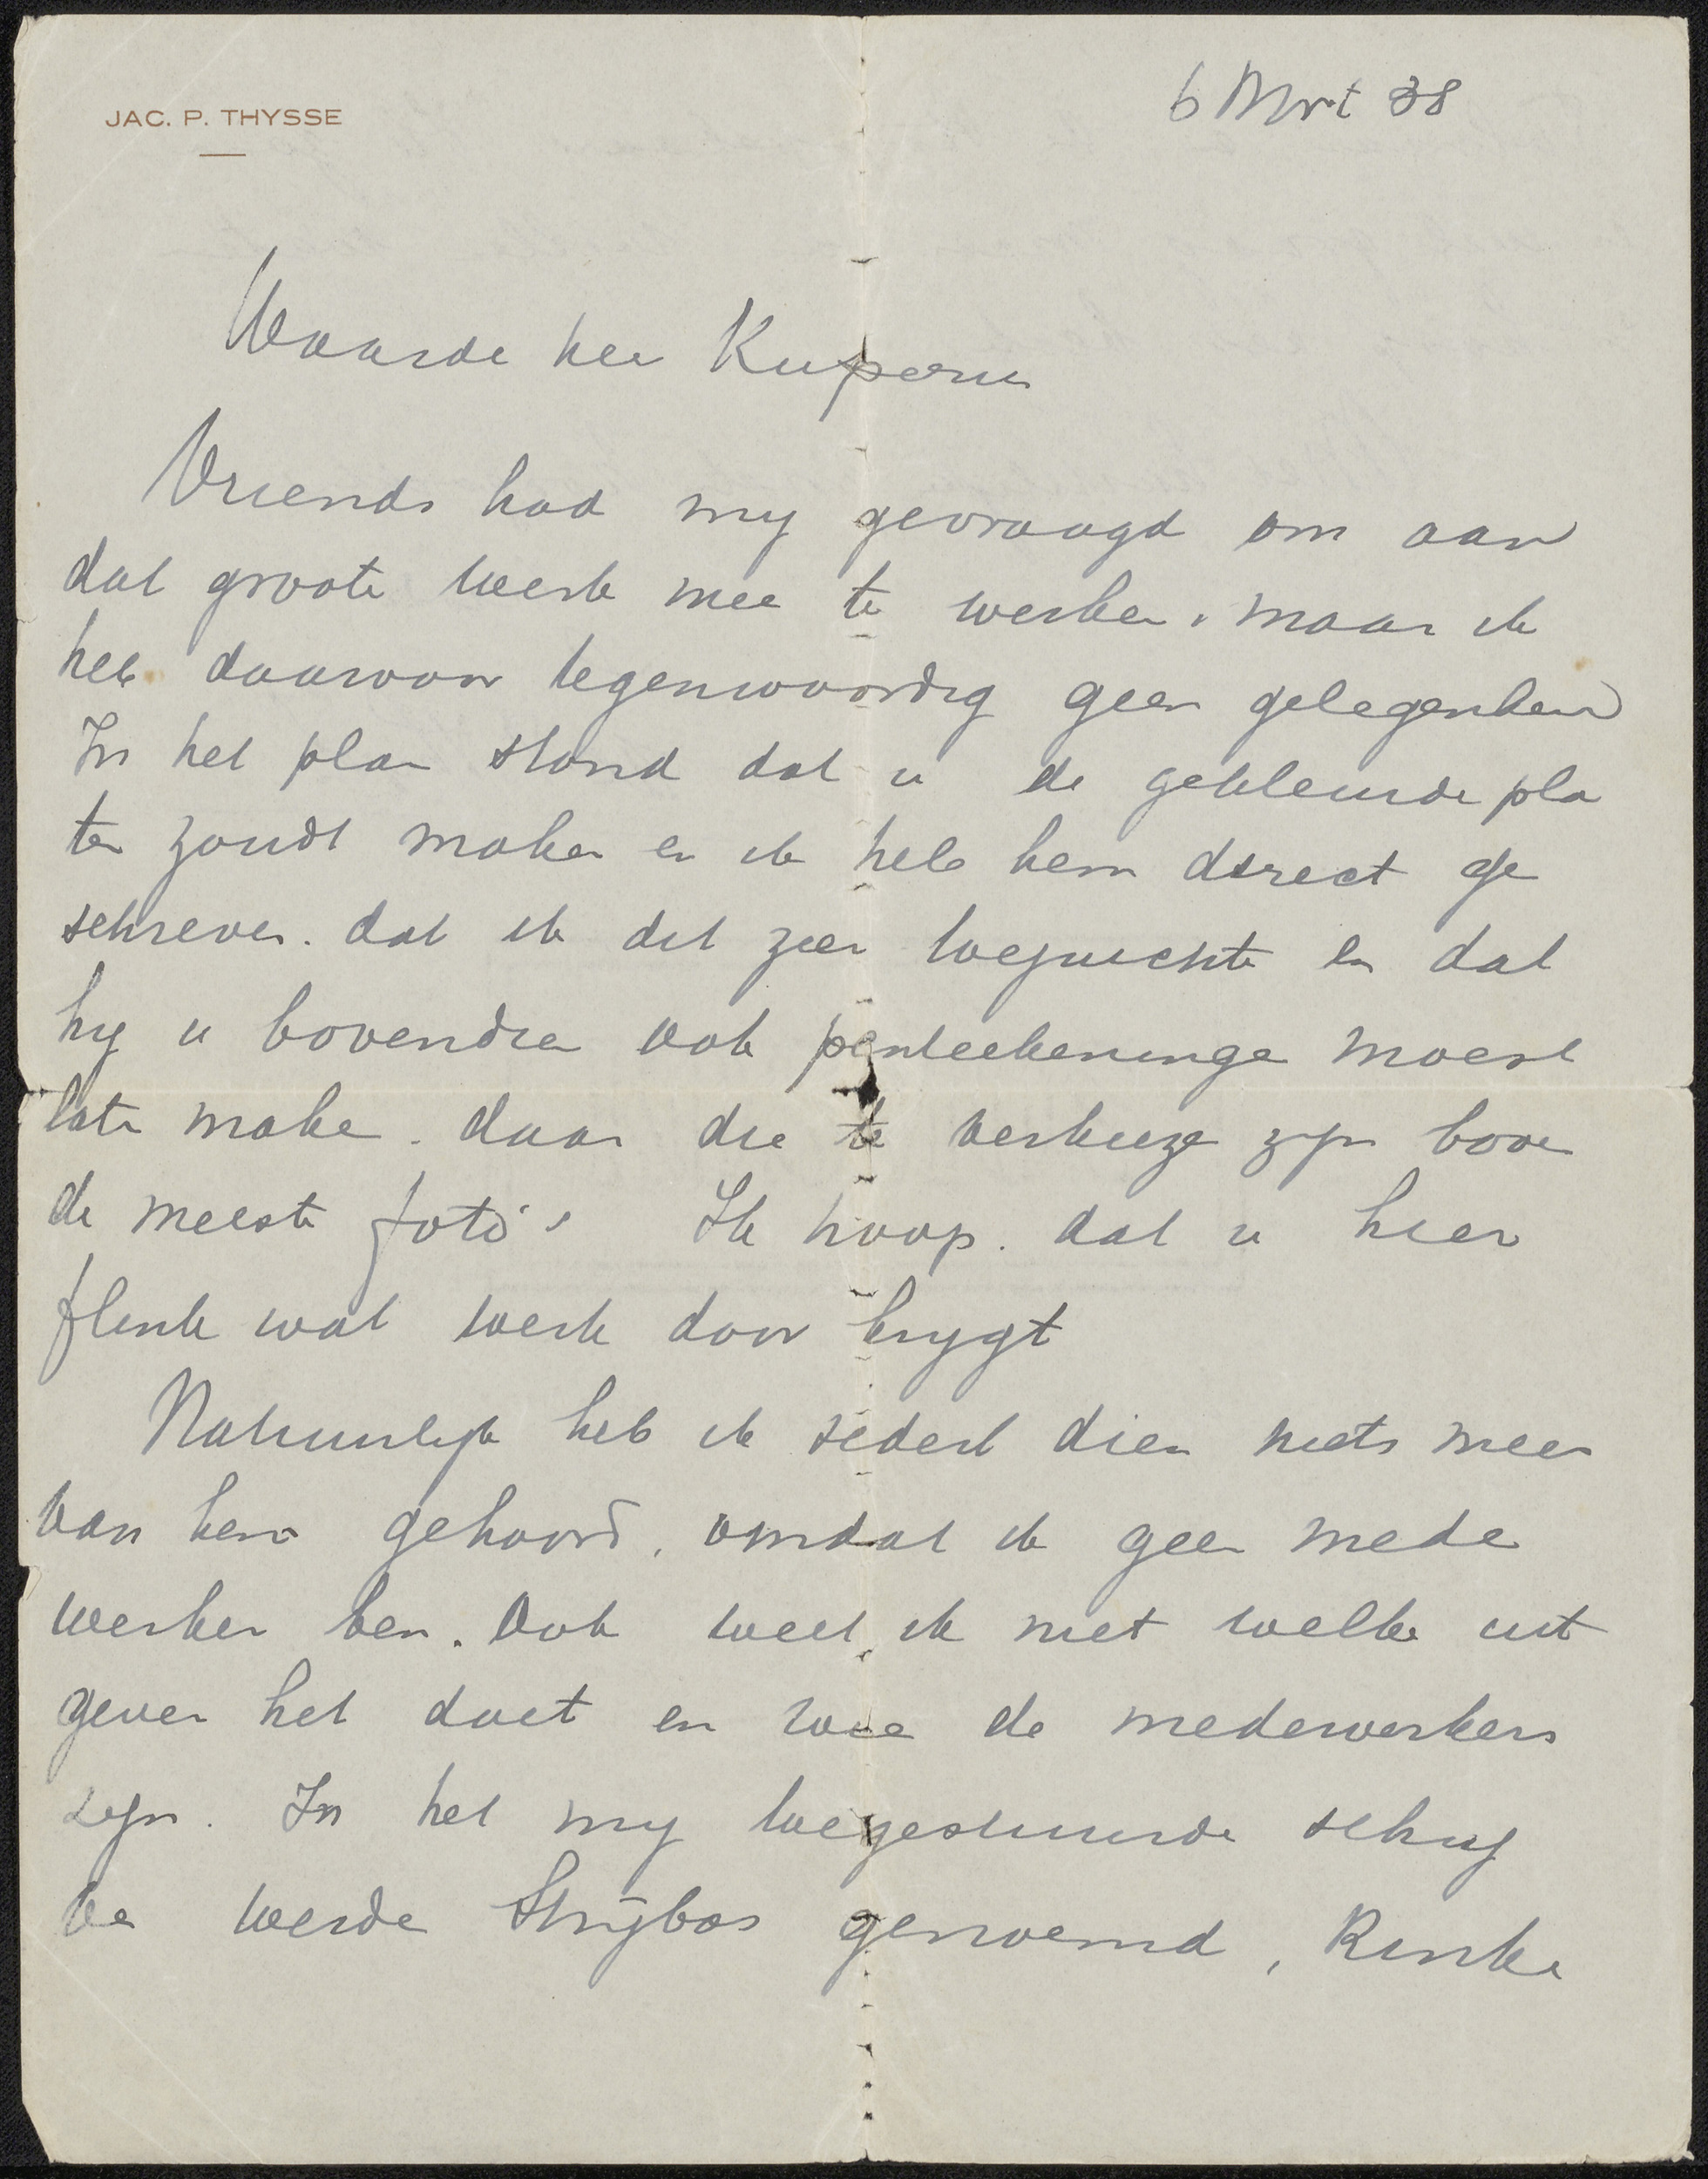 JAC. P. THYSSE
6 Mrt 38
Waarde heer Kuperus
Vriends had my gevraagd om aan
dat groote werk mee te werken, maar ik
heb daarvoor tegenwoordig geen gelegenheid
In het plan stond dat u de gekleurde pla
ten zoudt maken en ik heb hem direct ge
schreven. dat ik dit zeer toejuichte en dat
hy u bovendien ook penteekeningen moest
laten maken. daar die te verkiezen zyn boven
de meeste foto's Ik hoop. dat u hier
flink wat werk door krygt
Natuurlyk heb ik sedert dien niets meer
van hem gehoord, omdat ik geen mede
werker ben. Ook weet ik niet welke uit
gever het doet en wie de medewerkers
zyn. In het my toegestuurde schry
ven werden Strijbos genoemd, Rinke